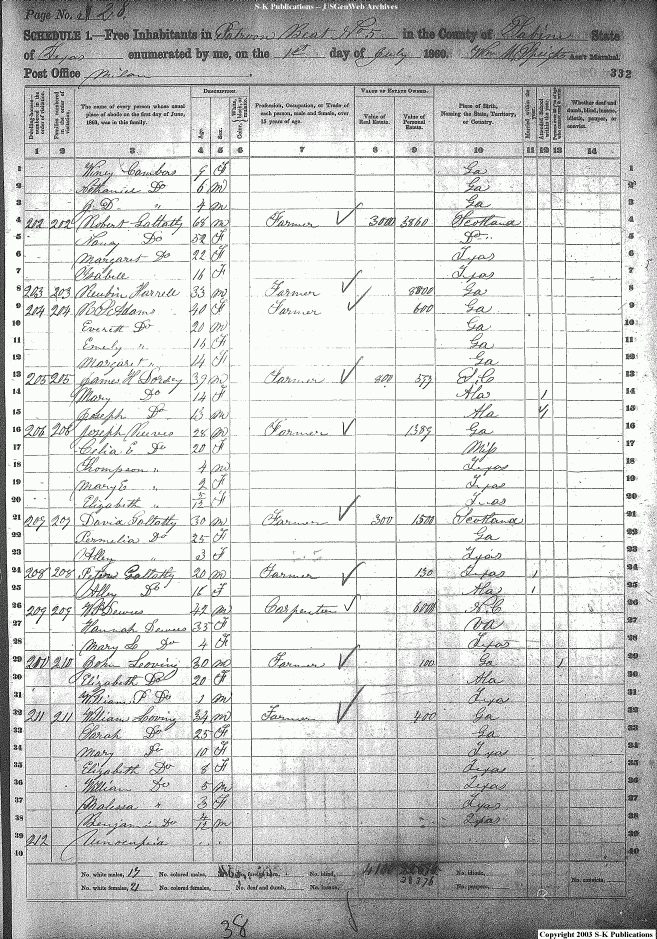 S-K Publications -- USGenWeb Archives
Page No. 28
SCHEDULE 1.—Free Inhabitants in Patroon Beat No 5 in the County of Sabine State
of Texas enumerated by me, on the 1st day of July 1860. Wm M Speight Ass't Marshal.
Post Office Milam 332
DESCRIPTION. VALUE OF ESTATE OWNED.
Dwelling-houses—numbered in the order of visitation. Families numbered in the order of visitation. The name of every person whose usual place of abode on the first day of June, 1860, was in this family. Age. Sex. Color, White, black, or mulatto. Profession, Occupation, or Trade of each person, male and female, over 15 years of age. Value of Real Estate. Value of Personal Estate. Place of Birth, Naming the State, Territory, or Country. Married within the year. Attended School within the year. Whether deaf and dumb, blind, insane, idiotic, pauper, or convict.
1 2 3 4 5 6 7 8 9 10 11 12 13 14
1 Cambers 9 F Ga 1
2 Nathaniel Do 6 m Ga 2
3 " 4 m Ga 3
4 202 202 Robert Gallatly 68 m Farmer 3000 3860 Scotland 4
5 Nancy Do 52 F Do " 5
6 Margaret Do 22 F Texas 6
7 Isabell 16 F Texas 7
8 203 203 Reubin Harrell 33 m Farmer 8800 Ga 8
9 204 204 Adams 40 F Farmer 600 Ga 9
10 Everett Do 20 m Ga 10
11 Emely " 16 F Ga 11
12 Margaret " 14 F Ga 12
13 205 205 James H 39 m Farmer 800 S.C 13
14 Mary Do 14 F Ala 1 14
15 Joseph Do 13 m Ala 1 15
16 206 206 Joseph Reeves 28 m Farmer 1389 Ga 16
17 Celia E Do 20 F Miss 17
18 Thompson " 4 m Texas 18
19 Mary E " 2 F Texas 19
20 Elizabeth " F Texas 20
21 207 207 David Gallatly 30 m Farmer 300 1500 Scotland 21
22 Permelia Do 25 F Ga 22
23 " 3 F Texas 23
24 208 208 Peter Gallatly 20 m Farmer 130 Texas 1 24
25 Do 16 F Ala 1 25
26 209 209 Dewees 42 m Carpenter 6000 N.C 26
27 Hannah Dewees 35 F Va 27
28 Mary Do 4 F Texas 28
29 210 210 John Loving 30 m Farmer 100 Ga 1 29
30 Elizabeth Do 20 F Ala 30
31 William P Do 1 m Texas 31
32 211 211 William Loving 34 m Farmer 400 Ga 32
33 Sarah Do 25 F Ga 33
34 Mary Do 10 F Texas 34
35 Elizabeth Do 8 F Texas 35
36 William Do 5 m Texas 36
37 Malissa " 3 F Texas 37
38 Benjamin Do 4/12 m Texas 38
39 212 Unocupied 39
40 40
No. white males, 17 No. colored males, No. foreign born, No. blind, 4100 No. idiotic, No. convicts,
No. white females, 21 No. colored females, No. deaf and dumb, No. insane, 28376 No. paupers,
38
Copyright 2003 S-K Publications